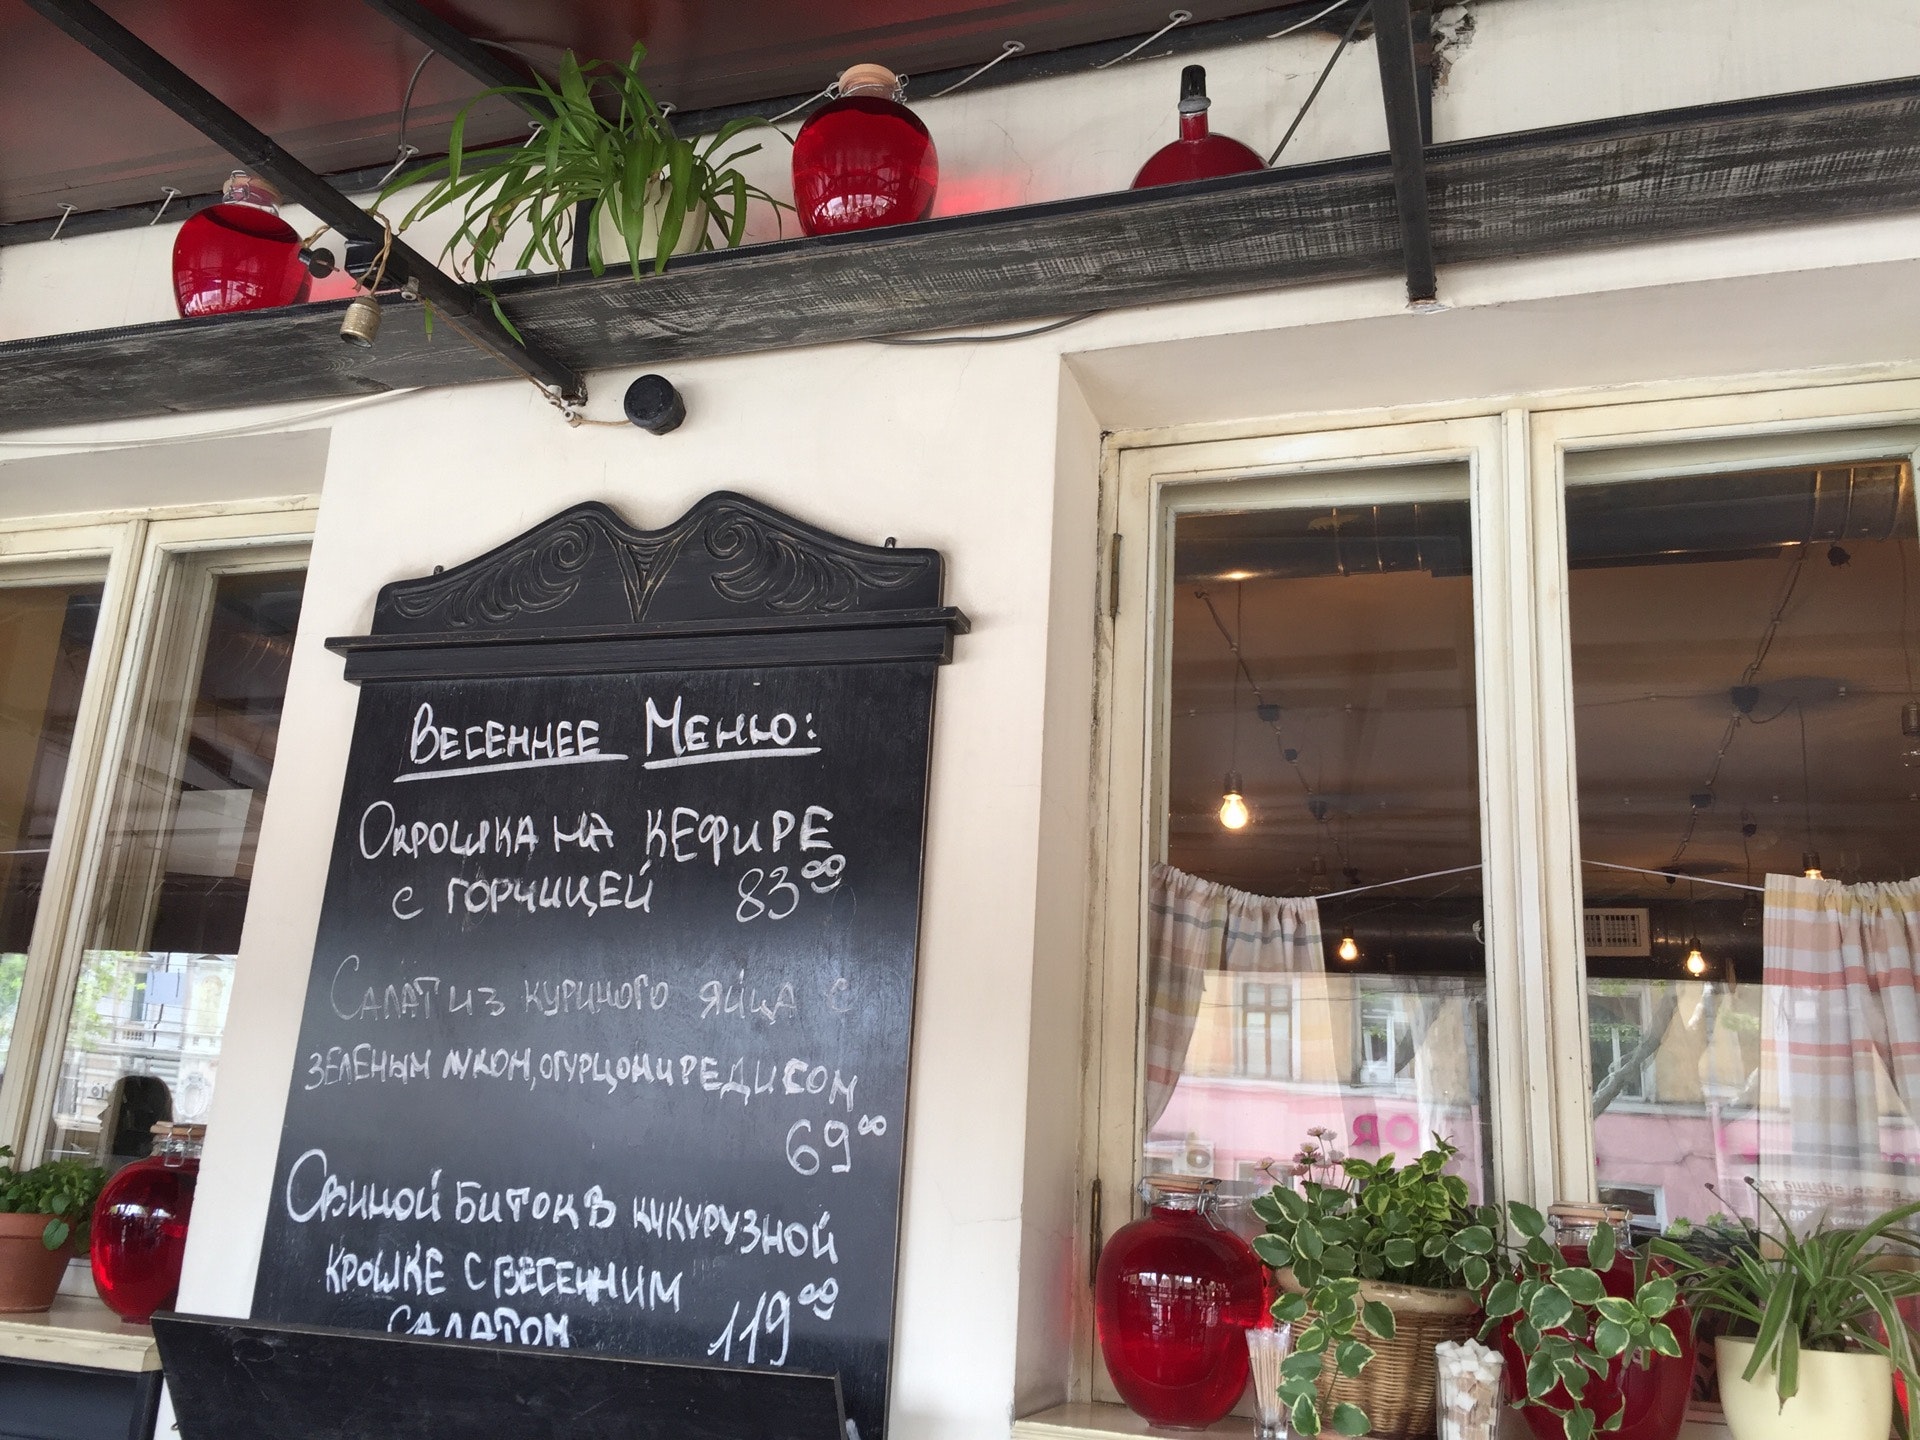 Весеннее Меню:
Окрошка на кефире
с горчицей 83⁰⁰
Салат из куриного яйца с
зеленым луком, огурцом и редисом
69⁰⁰
Свиной биток в кукурузной
крошке с весенним
салатом 119⁰⁰